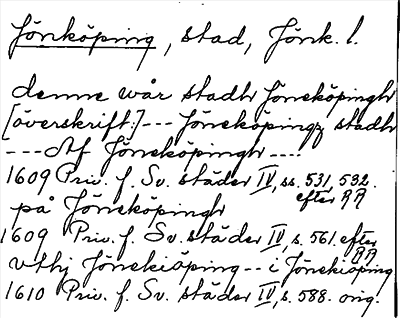 Jönköping, stad, Jönk. l.
denne wår stadh Jöneköpingh
[överskrift:] --- Jöneköpingz stadh
--- Af Jöneköpingh ----
1609 Priv. f. Sv. städer IV, ss. 531, 532.
efter RA
på Jöneköpingh
1609 Priv. f. Sv. städer IV, s. 561. efter
RA
vthj Jönekiöping -- i Jönekiöping
1610 Priv. f. Sv. städer IV, s. 588. orig.